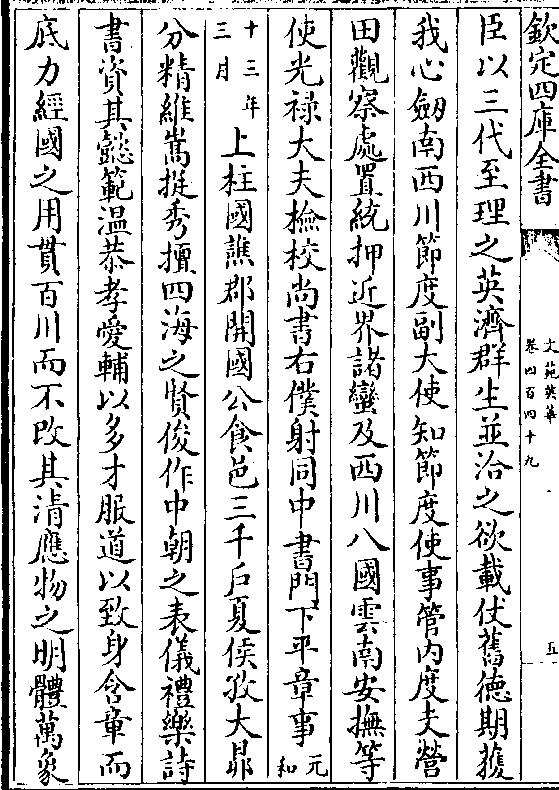 欽定四庫全書
文苑英華
卷四百四十九
五
臣以三代至理之英濟群生並洽之欲載仗舊徳期獲
我心劒南西川節度副大使知節度使事管内度支營
田觀察處置統押近界諸蠻及西川八國雲南安撫等
使光禄大夫檢校尚書右僕射同中書門下平章事元和
十三年三月上柱國譙郡開國公食邑三千户夏侯孜大昴
分精維嵩挺秀擅四海之賢俊作中朝之表儀禮樂詩
書資其懿範温恭孝愛輔以多才服道以致身含章而
底力經國之用貫百川而不改其清應物之明體萬象